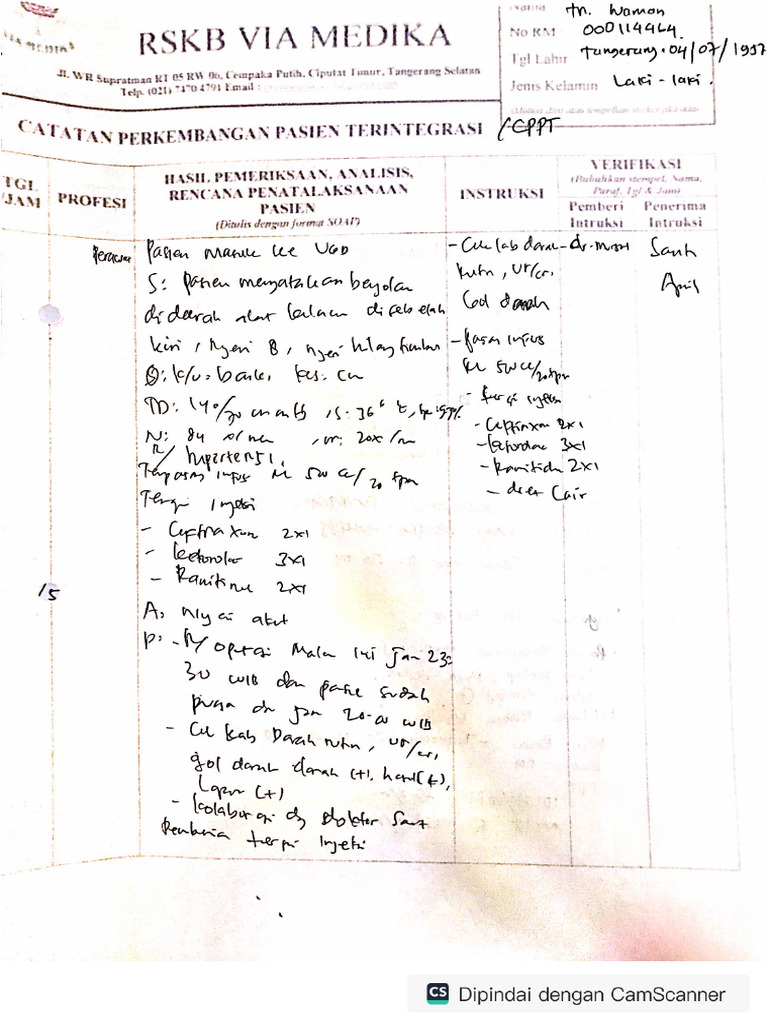 VIA MEDIKA
RSKB VIA MEDIKA
Jl. WR Supratman RT 05 RW 06, Cempaka Putih, Ciputat Timur, Tangerang Selatan
Telp. (021) 7470 4791 Email :
Nama Tn. Waman
No RM 000114464
Tgl Lahir Tangerang, 04/07/1957
Jenis Kelamin Laki-laki.
CATATAN PERKEMBANGAN PASIEN TERINTEGRASI / CPPT
TGL /JAM
PROFESI
HASIL PEMERIKSAAN, ANALISIS, RENCANA PENATALAKSANAAN PASIEN
(Ditulis dengan format SOAP)
INSTRUKSI
VERIFIKASI
(Bubuhkan stempel, Nama, Paraf, Tgl & Jam)
Pemberi Intruksi
Penerima Intruksi
Perawat
Pasien Masuk ke UGD
S: Pasien mengatakan benjolan
di daerah alat kelamin di sebelah
kiri, Nyeri 8, nyeri hilang timbul
O: k/u: baik, kes: cm
TD: 140/70 mmHg, S: 36
N: 84 x/mnt, rr: 20x/m
R/ hipertensi.
Terpasang infus RL 500 cc/20 tpm
Terapi Injeksi
- Ceftriaxone 2x1
- ketorolac 3x1
- Ranitidine 2x1
15
A: Nyeri akut
P: - R/ operasi Malam ini jam 23:
30 WIB dan pasien sudah
puasa dr jam 20.00 WIB
- Cek Lab Darah rutin, ur/cr,
gol darah darah (+), hasil (+),
Lapor (+)
- kolaborasi dg dokter
Pemberian terapi Injeksi
- Cek lab darah
rutin, ur/cr,
Gol darah
- Pasang infus
RL 500 cc/20 tpm
- Terapi injeksi
- Ceftriaxon 2x1
- ketorolac 3x1
- Ranitidin 2x1
- diet Cair
Santi
April
CS Dipindai dengan CamScanner